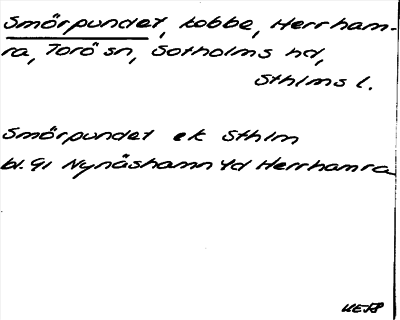 Smörpundet, kobbe, Herrham-
ra, Torö sn, Sotholms hd,
Sthlms l.
Smörpundet ek Sthlm
bl. 91 Nynäshamn Yd Herrhamra